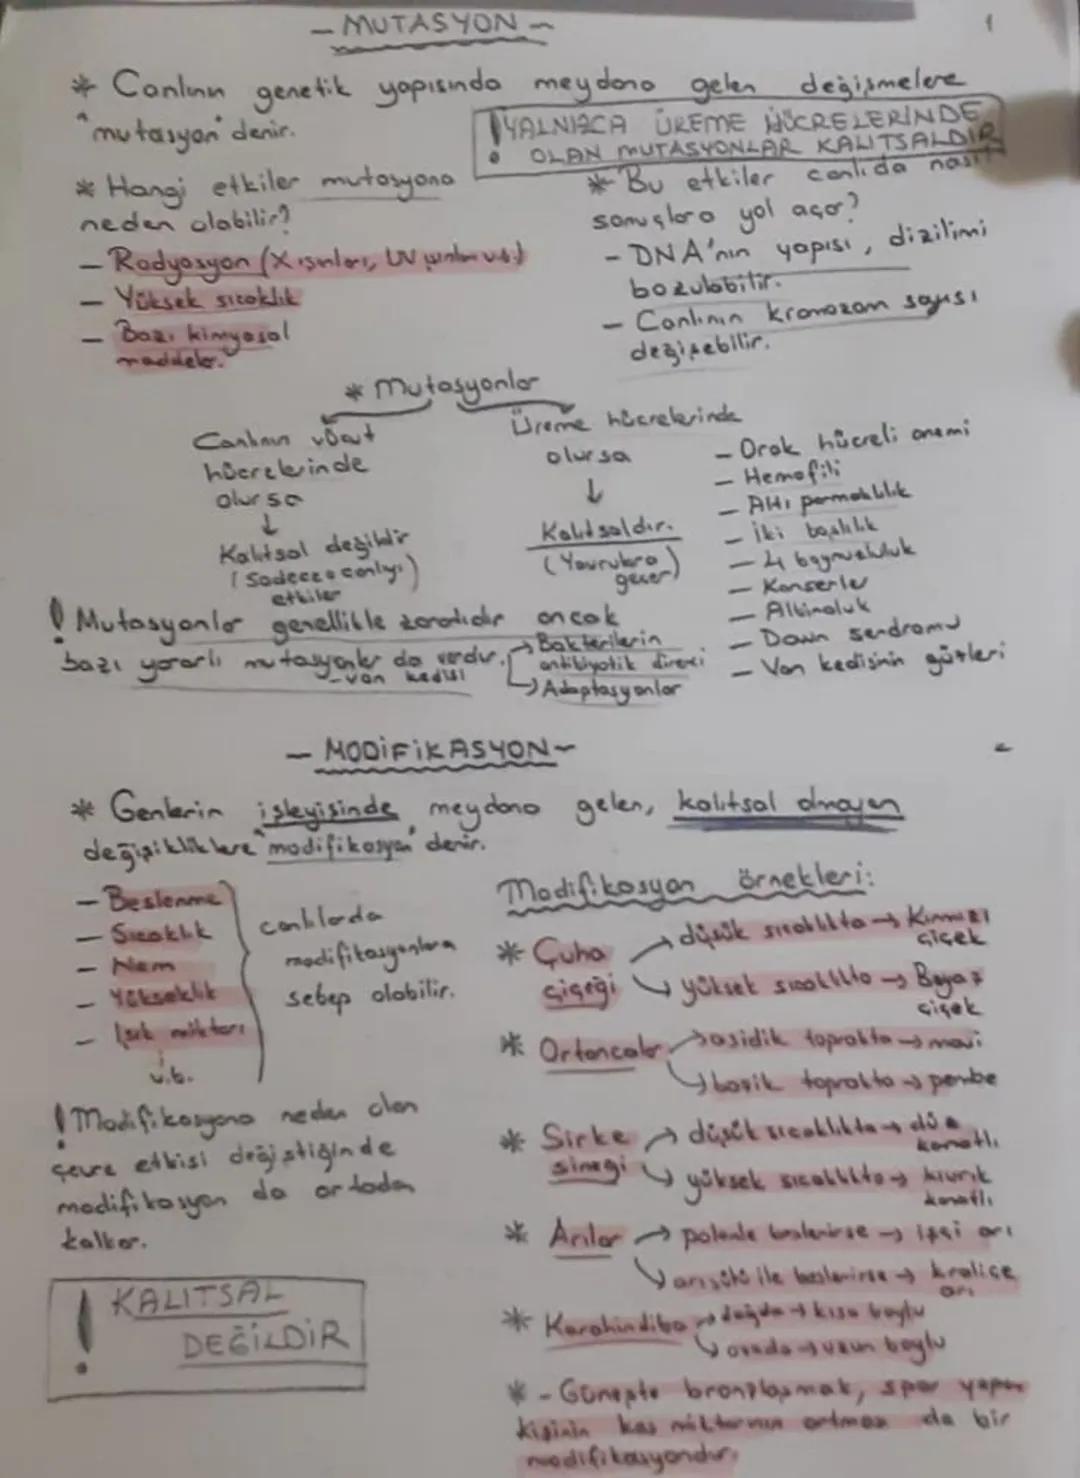 - MUTASYON -
1
* Canlının genetik yapısında meydana gelen değişmelere
"mutasyon" denir.
! YALNIZCA ÜREME HÜCRELERİNDE
OLAN MUTASYONLAR KALITSALDIR
* Hangi etkiler mutasyona
neden olabilir?
- Radyasyon (X ışınları, UV ışınları v.b.)
- Yüksek sıcaklık
- Bazı kimyasal
maddeler.
* Bu etkiler canlıda nasıl
sonuçlara yol açar?
- DNA'nın yapısı, dizilimi
bozulabilir.
- Canlının kromozom sayısı
değişebilir.
* Mutasyonlar
Canlının vücut
hücrelerinde
olursa
↓
Kalıtsal değildir
(Sadece o canlıyı)
etkiler
Üreme hücrelerinde
olursa
↓
Kalıtsaldır.
(Yavrulara
geçer)
- Orak hücreli anemi
- Hemofili
- Altı parmaklılık
- İki başlılık
- 4 boynuzluluk
- Kanserler
- Albinoluk
- Down sendromu
- Van kedisinin gözleri
! Mutasyonlar genellikle zararlıdır ancak
bazı yararlı mutasyonlar da vardır.
- Van kedisi
→ Bakterilerin
antibiyotik direnci
→ Adaptasyonlar
- MODİFİKASYON -
* Genlerin işleyişinde meydana gelen, kalıtsal olmayan
değişikliklere "modifikasyon" denir.
- Beslenme
- Sıcaklık
- Nem
- Yükseklik
- Işık miktarı
v.b.
canlılarda
modifikasyonlara
sebep olabilir.
! Modifikasyona neden olan
çevre etkisi değiştiğinde
modifikasyon da ortadan
kalkar.
! KALITSAL
DEĞİLDİR
Modifikasyon örnekleri:
* Çuha çiçeği → düşük sıcaklıkta → Kırmızı
çiçek
→ yüksek sıcaklıkta → Beyaz
çiçek
* Ortancalar → asidik toprakta → mavi
→ bazik toprakta → pembe
* Sirke sineği → düşük sıcaklıkta → düz
kanatlı
→ yüksek sıcaklıkta → kıvrık
kanatlı
* Arılar → polenle beslenirse → işçi arı
→ arı sütü ile beslenirse → kraliçe
arı
* Karahindiba → dağda → kısa boylu
→ ovada → uzun boylu
* - Güneşte bronzlaşmak, spor yapan
kişinin kas miktarının artması da bir
modifikasyondur.